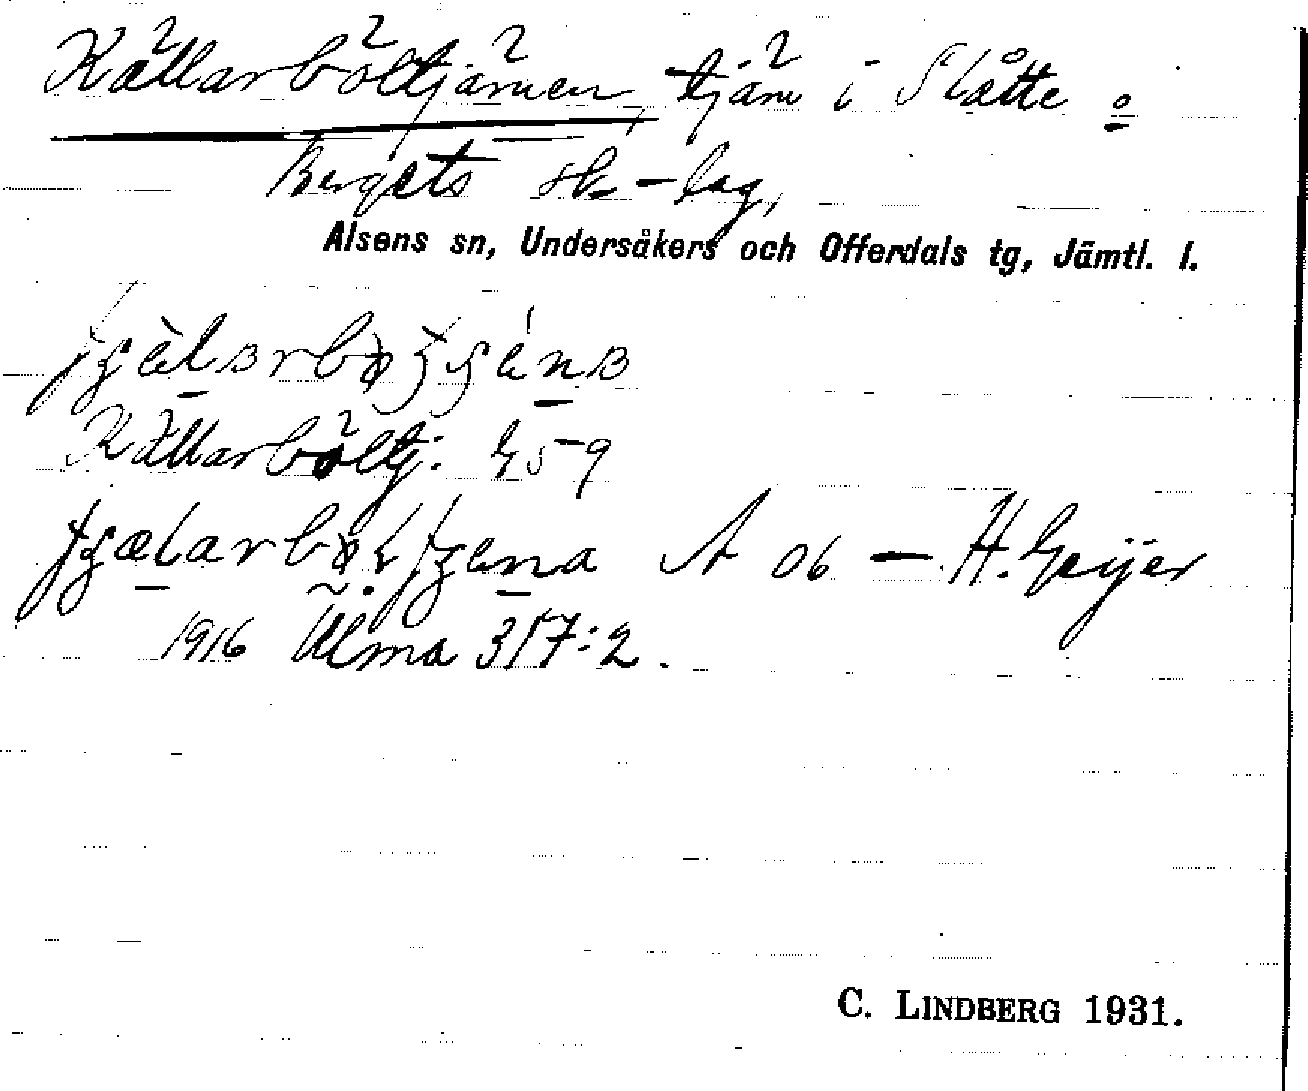 Källarböltjärnen, tjärn i Slåtte o
Bergets sk-lag,
Alsens sn, Undersåkers och Offerdals tg, Jämtl. l.
Källarböltj. G59
A 06 — H. Geijer
1916 Ulma 317:2.
C. LINDBERG 1931.